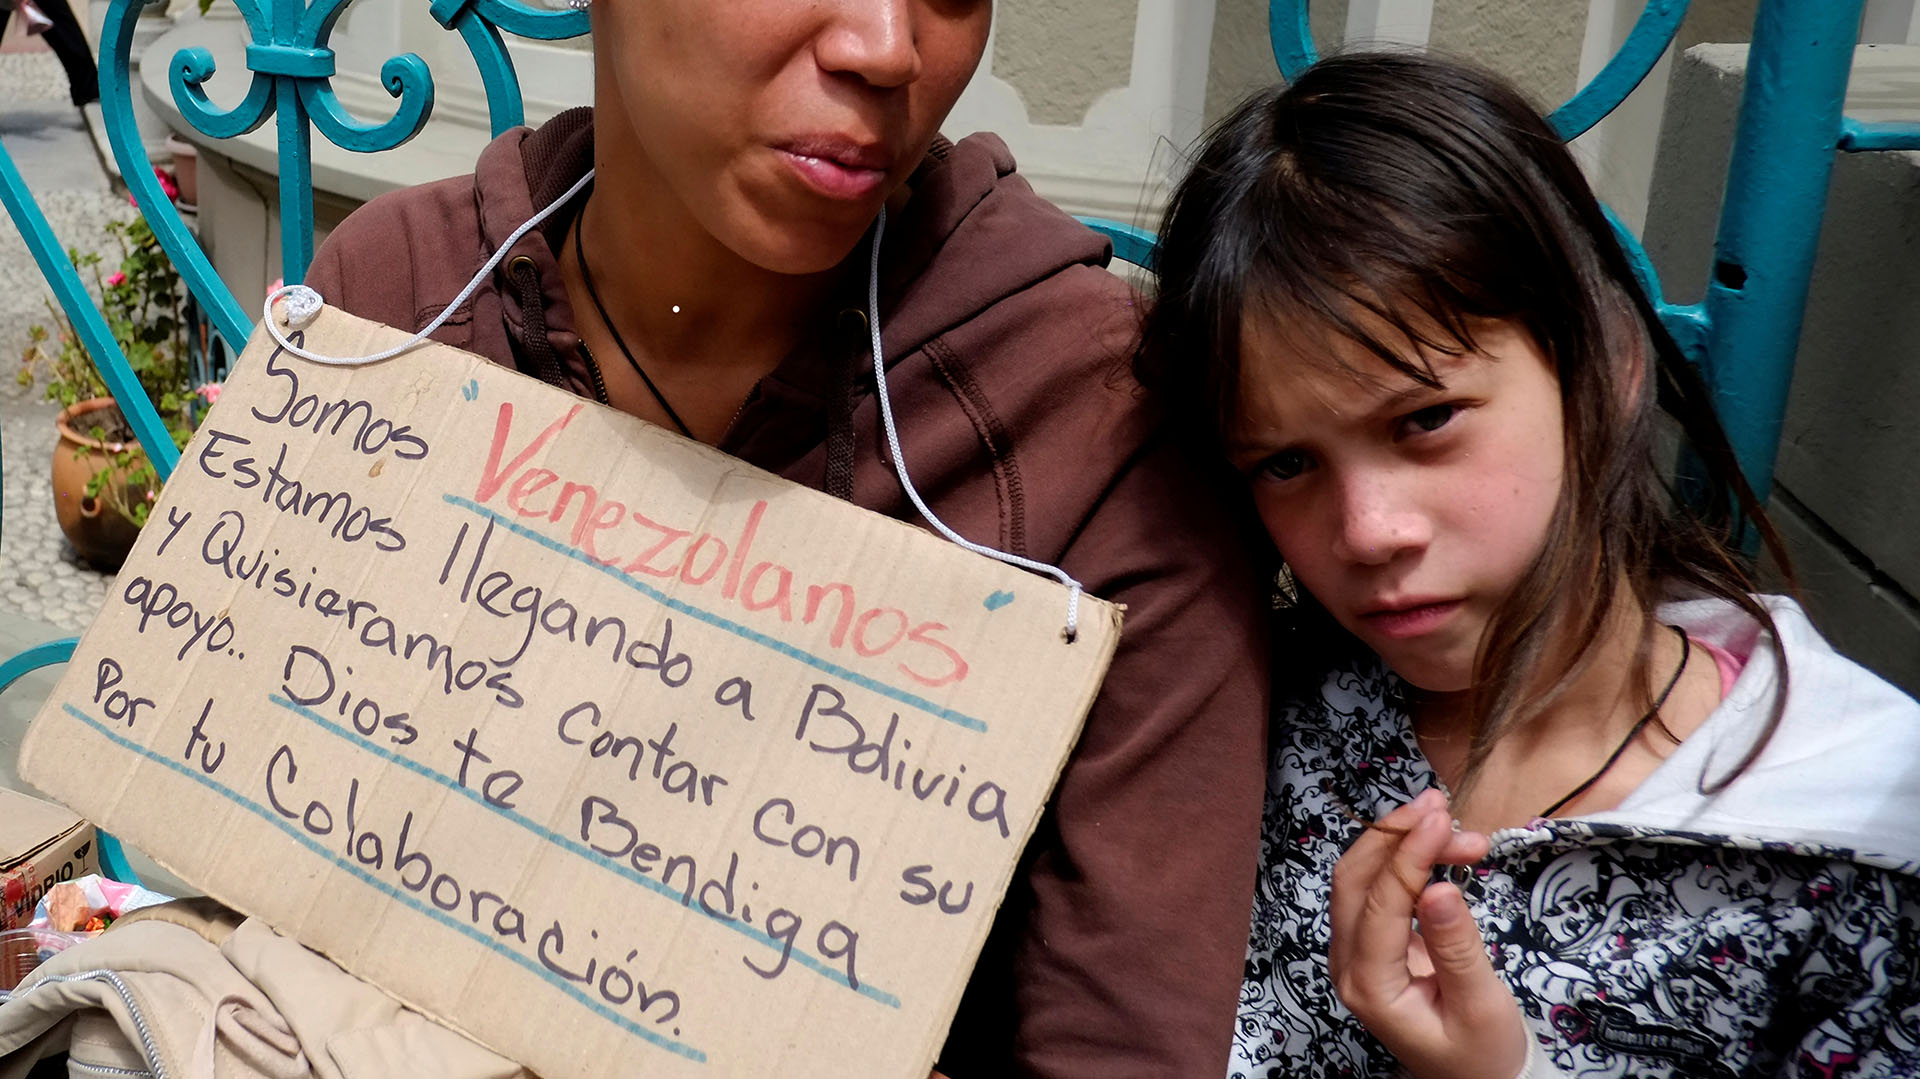 Somos "Venezolanos"
Estamos llegando a Bolivia
y Quisieramos Contar con su
apoyo.. Dios te Bendiga
Por tu Colaboración.
VIDRIO
MONSTER HIGH